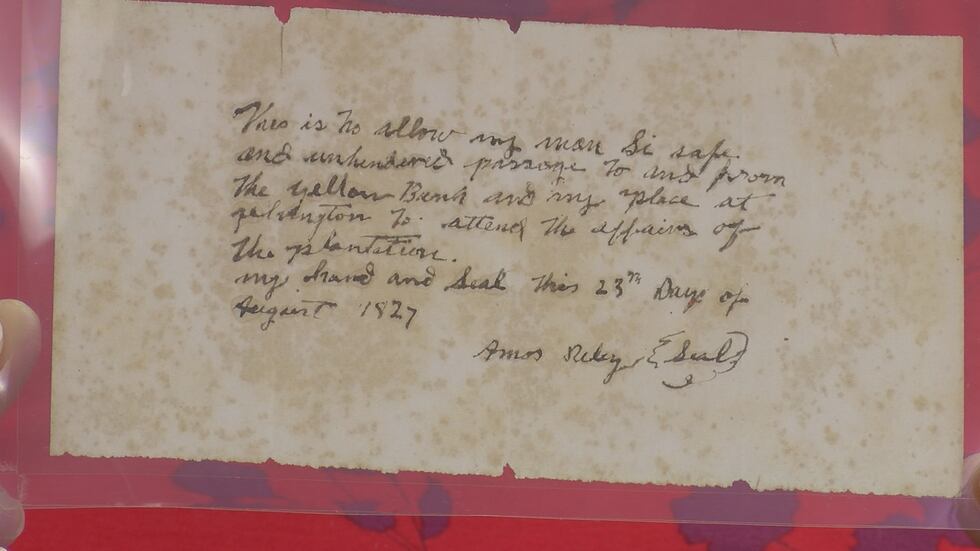 This is to allow my man Si safe
and unhendered passage to and from
the yellow Bank and my place at
yelvington to attend the affairs of
the plantation.
my hand and Seal this 23rd Day of
August 1827
Amos Riley {Seal}